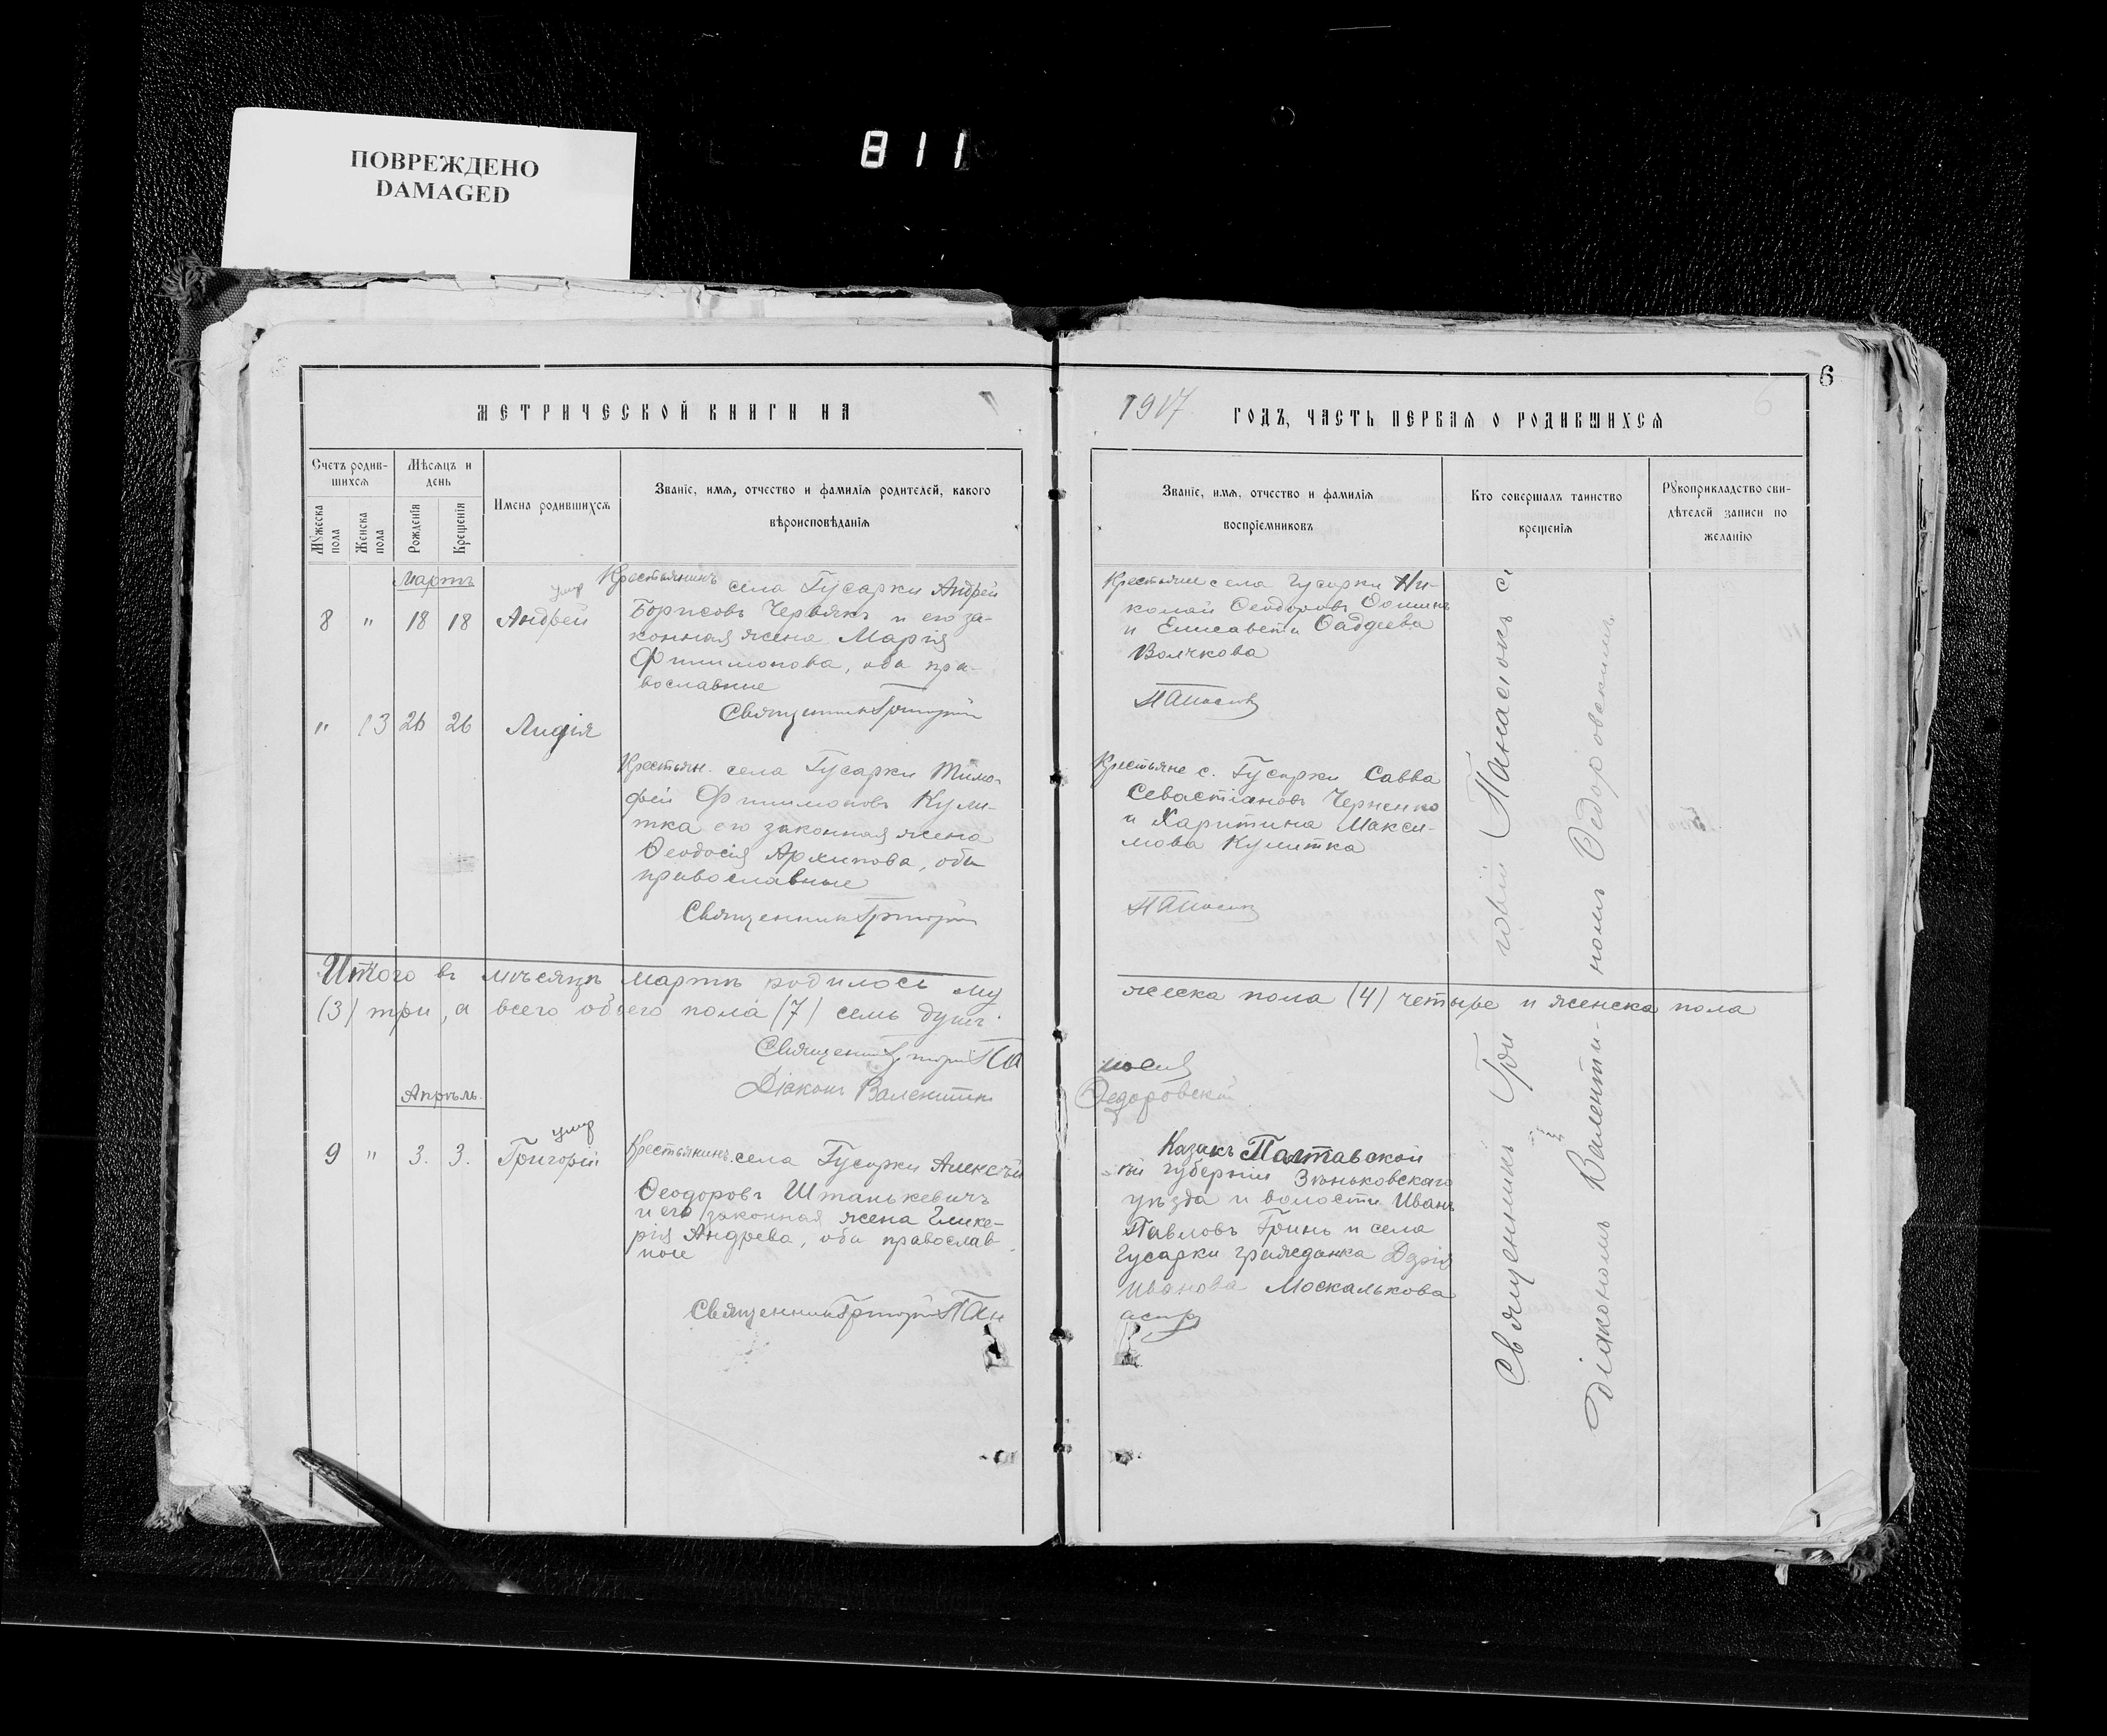 ПОВРЕЖДЕНО
DAMAGED
811
6
МЕТРИЧЕСКОЙ КНИГИ НА
1917 ГОДЪ, ЧАСТЬ ПЕРВАЯ О РОДИВШИХСЯ
Счетъ родив-
шихся
Мѣсяцъ и
день
Мужеска
пола
Женска
пола
Рожденія
Крещенія
Имена родившихся
Званіе, имя, отчество и фамилія родителей, какого
вѣроисповѣданія
Званіе, имя, отчество и фамилія
воспріемниковъ
Кто совершалъ таинство
крещенія
Рукоприкладство сви-
дѣтелей записи по
желанію
Мартъ
8 " 18 18
умер
Андрей
Крестьянинъ села Гусарки Андрей
Борисовъ Червякъ и его за-
конная жена Марія
Филимонова, оба пра-
вославные
Священник Григорій
Крестьяне села Гусарки Ни-
колай Ѳеодоровъ
и Елисавета Ѳаддеева
Волчкова
" 13 26 26
Лидія
Крестьян. села Гусарки Тимо-
фей Филимоновъ Кули-
тка его законная жена
Ѳеодосія Архипова, оба
православные
Священник Григорій
Крестьяне с. Гусарки Савва
Севастіановъ Черненко
и Харитина Макси-
мова Кулитка
Итого въ мѣсяцѣ Мартѣ родилось му
жеска пола (4) четыре и женска пола
(3) три, а всего обоего пола (7) семь душъ.
Священник Григорій Па
насів
Діаконъ Валентин
Ѳедоровскій
Апрѣль.
9 " 3. 3.
умер
Григорій
Крестьянинъ села Гусарки Алексѣй
Ѳеодоровъ Штанькевичъ
и его законная жена Глике-
рія Андреева, оба православ
ные
Священник Григорій Пан
Казакъ Палтавской
губерніи Зѣньковскаго
уѣзда и волости Иванъ
Павловъ Гринь и села
Гусарки гражданка Дарія
Иванова Москалькова
Священникъ Гри горій Панасюкъ с
Діакономъ Валенти- номъ Ѳедоровскимъ